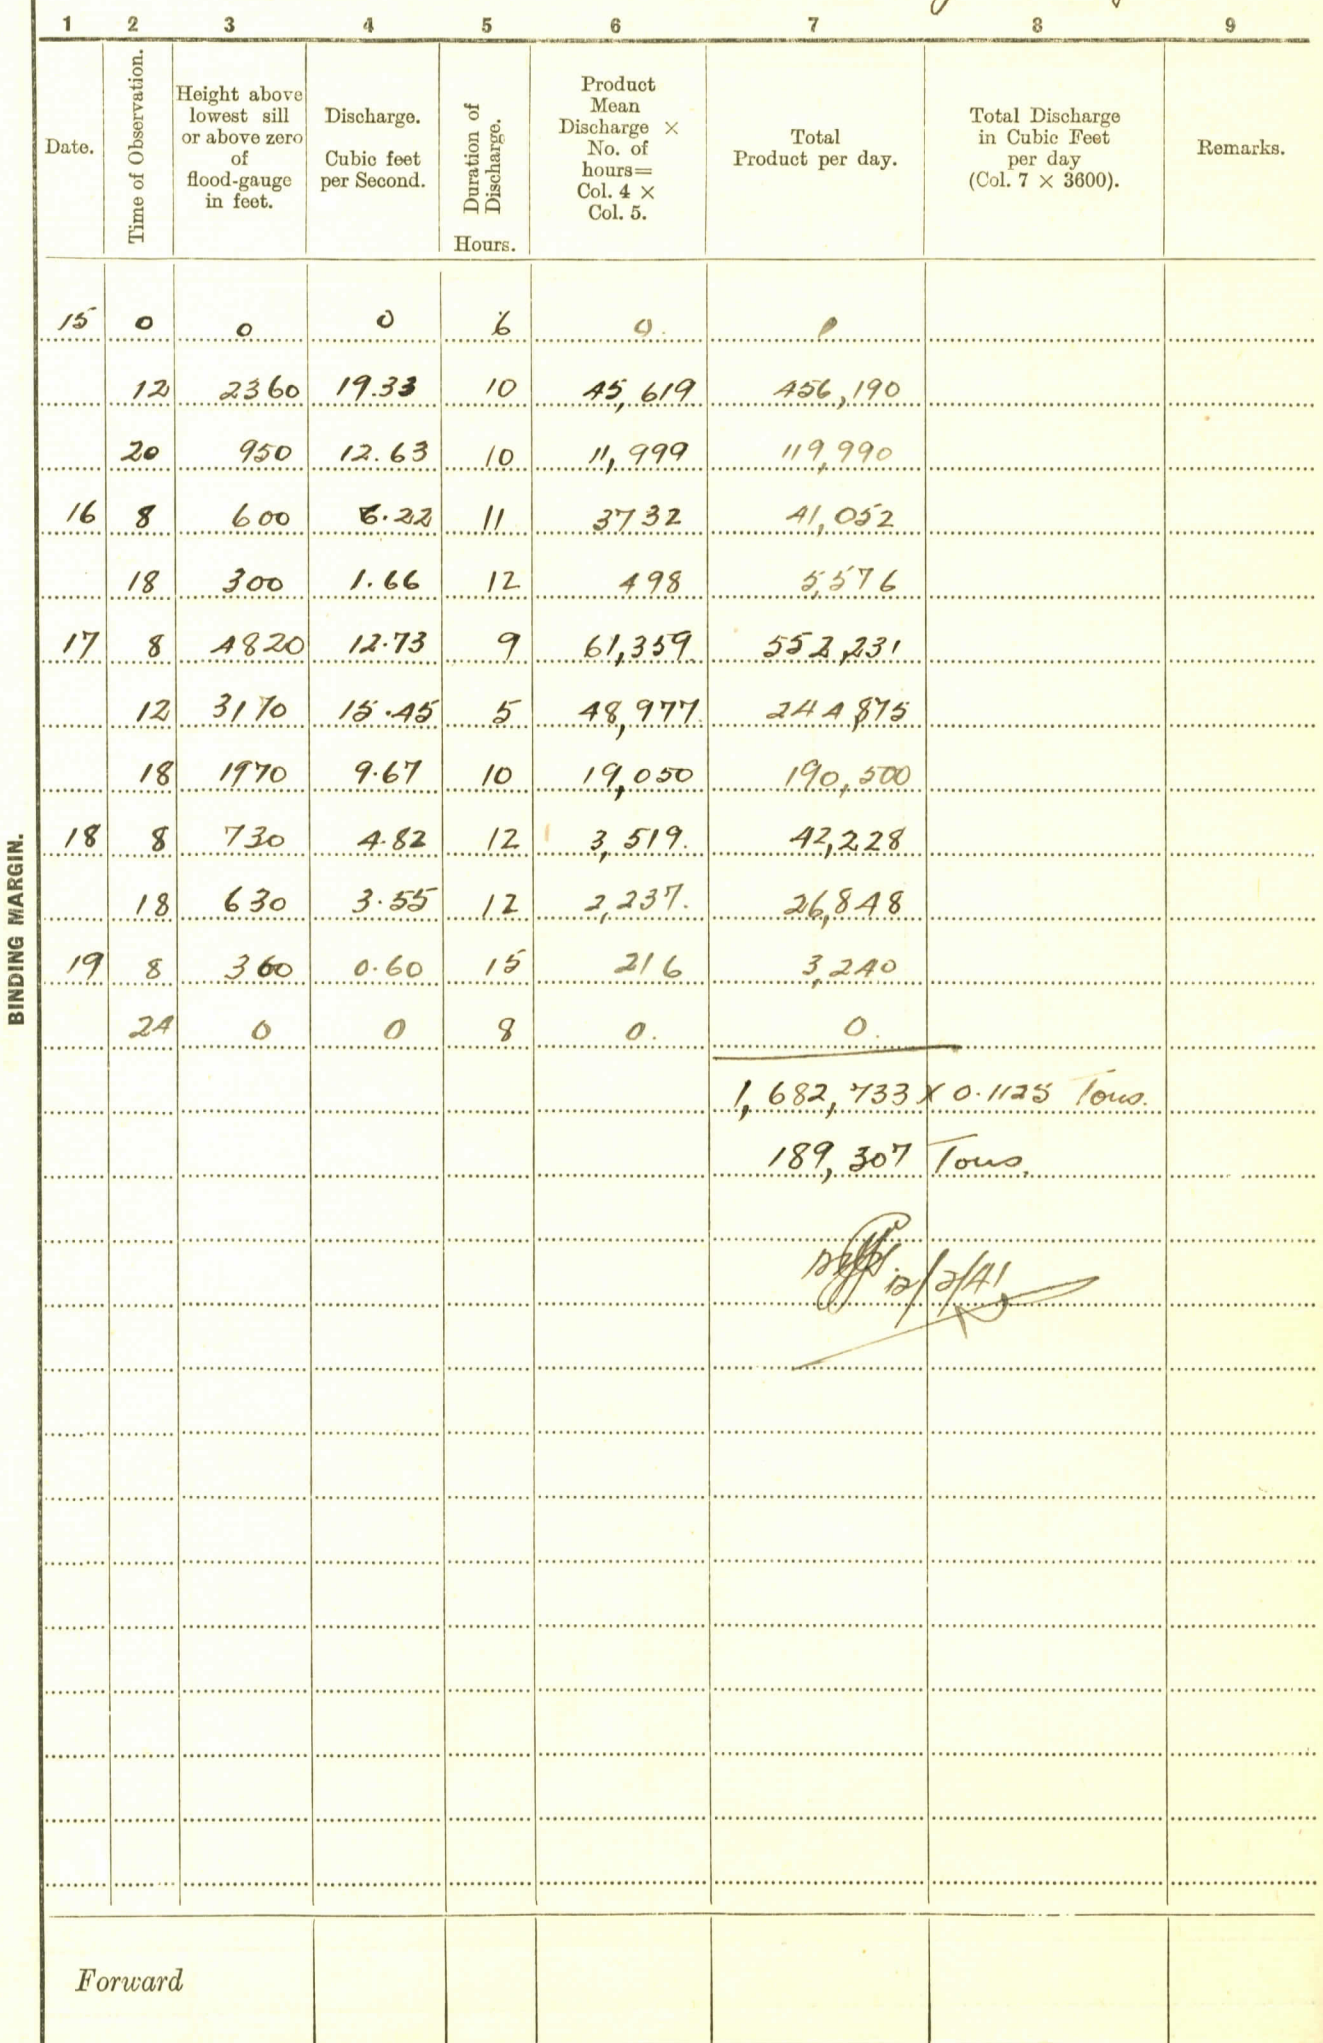 1 2 3 4 5 6 7 8 9
Date.
Time of Observation.
Height above
lowest sill
or above zero
of
flood-gauge
in feet.
Discharge.
Cubic feet
per Second.
Duration of
Discharge.
Hours.
Product
Mean
Discharge ×
No. of
hours=
Col. 4 ×
Col. 5.
Total
Product per day.
Total Discharge
in Cubic Feet
per day
(Col. 7 × 3600).
Remarks.
15 0 0 0 6 0. 0
12 2360 19.33 10 45,619 456,190
20 950 12.63 10 11,999 119,990
16 8 600 6.22 11 3732 41,052
18 300 1.66 12 498 5,576
17 8 4820 12.73 9 61,359 552,231
12 3170 15.45 5 48,977 244,875
18 1970 9.67 10 19,050 190,500
18 8 730 4.82 12 3,519. 42,228
18 630 3.55 12 2,237. 26,848
19 8 360 0.60 15 216 3,240
24 0 0 8 0. 0.
1,682,733 × 0.1125 Tons.
189,307 Tons.
12/2/41
BINDING MARGIN.
Forward